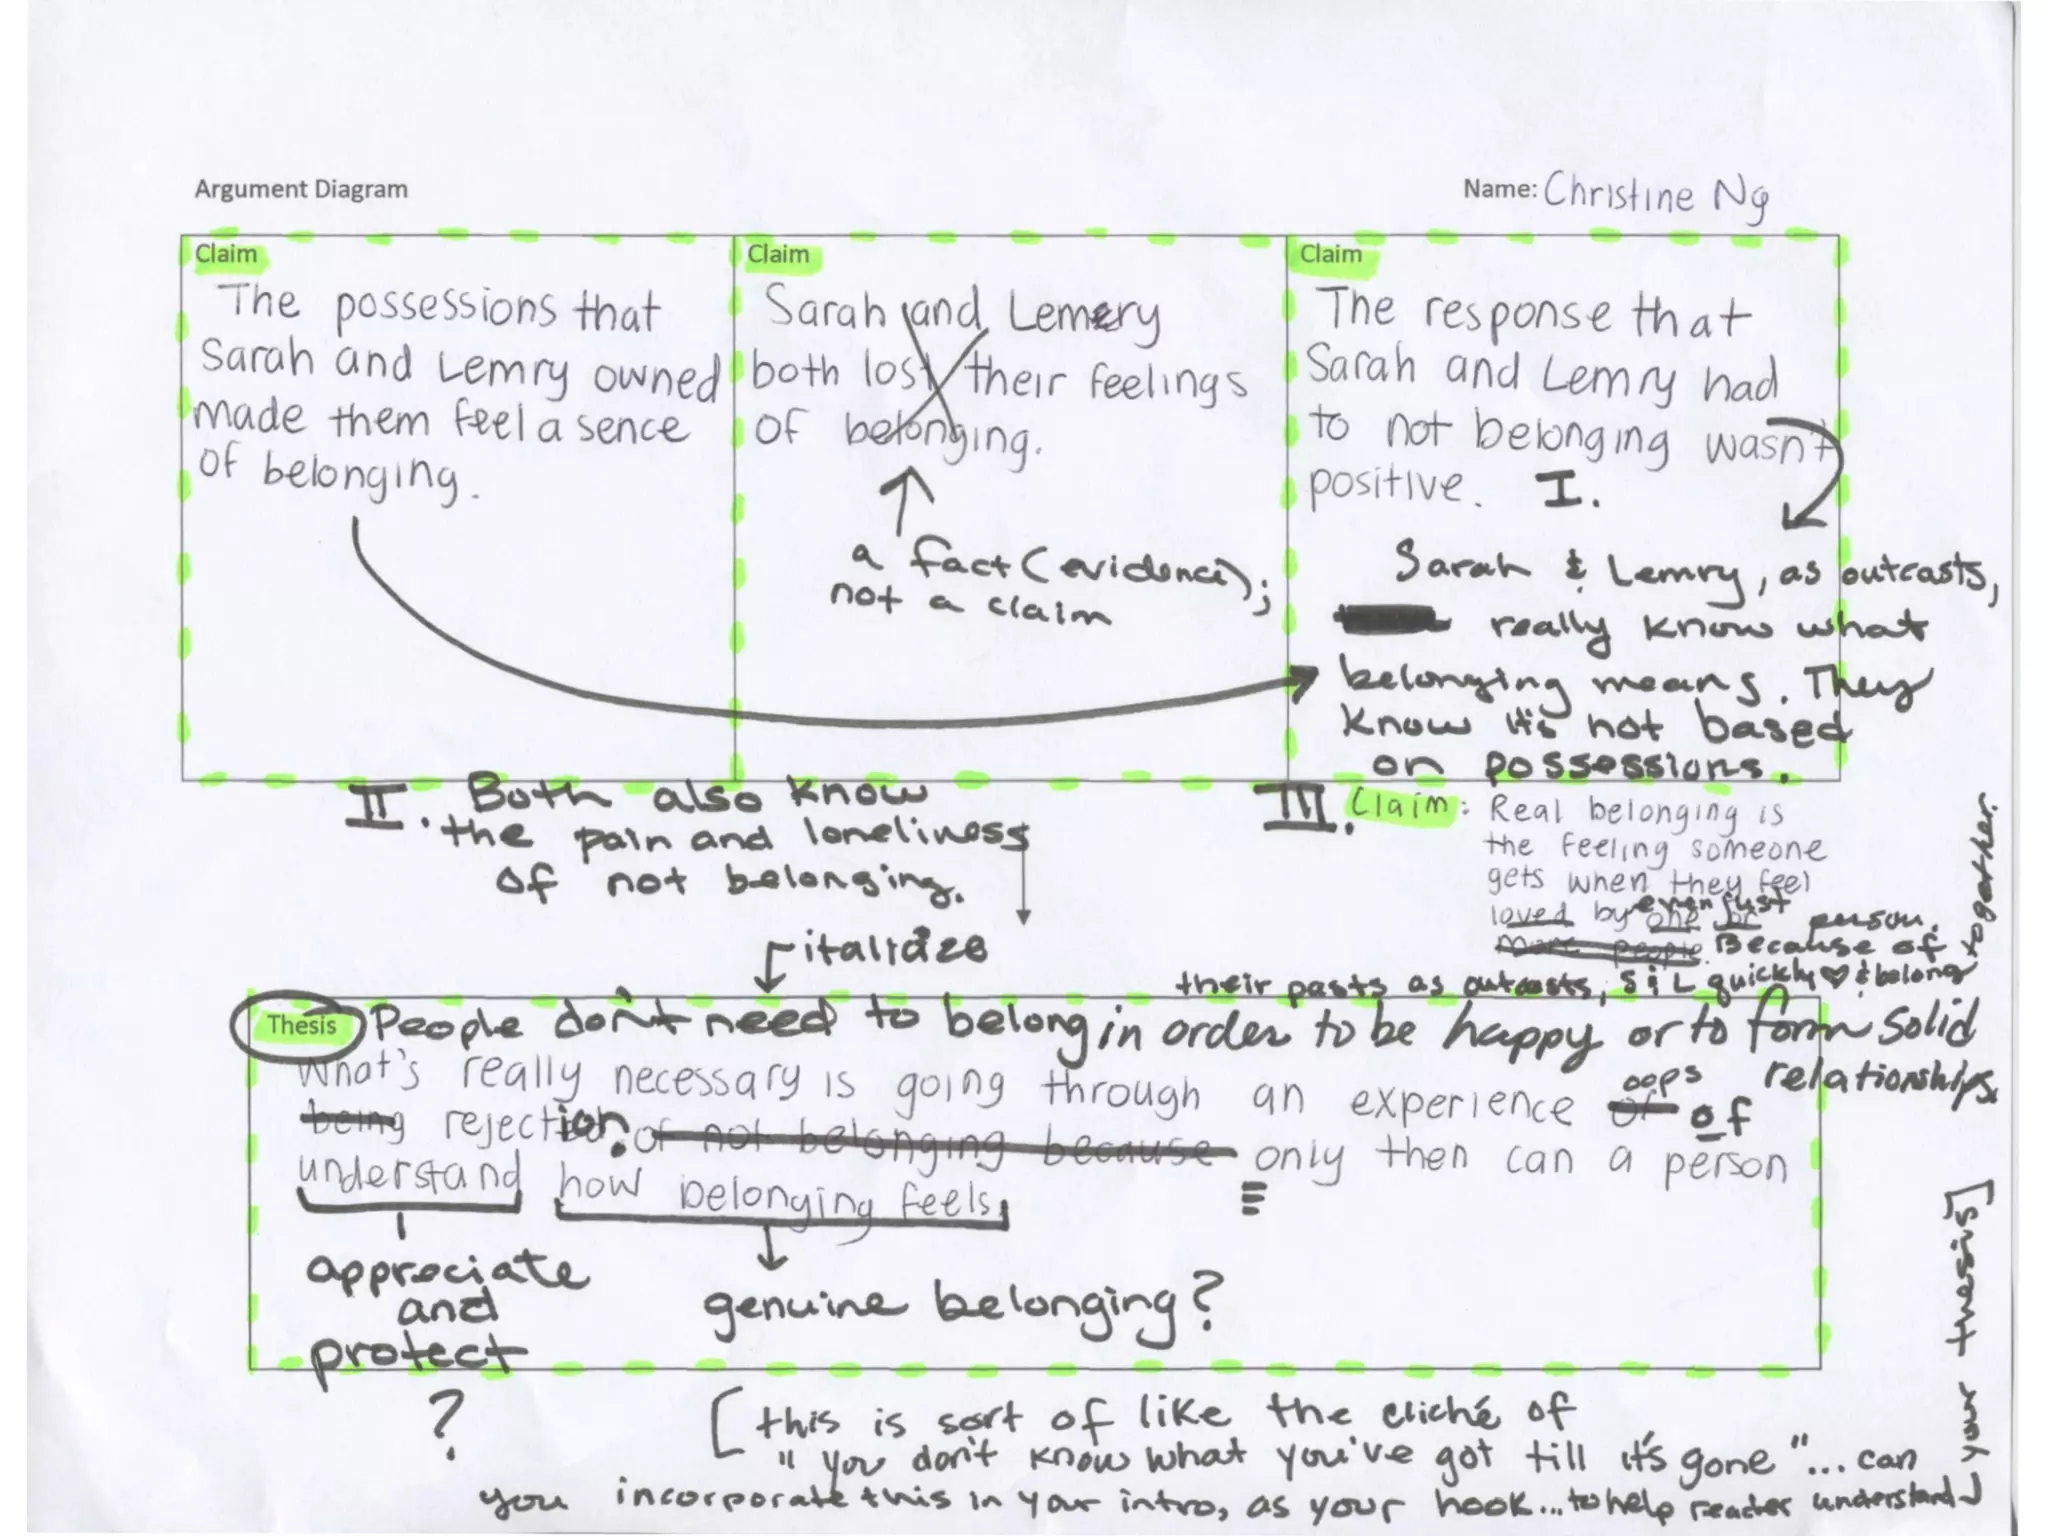 Argument Diagram
Name: Christine Ng
Claim
The possessions that
Sarah and Lemry owned
made them feel a sence
of belonging.
Claim
Sarah and Lemery
both lost their feelings
of belonging.
a fact (evidence);
not a claim
Claim
The response that
Sarah and Lemry had
to not belonging wasn't
positive. I.
Sarah & Lemry, as outcasts,
really know what
belonging means. They
know it's not based
on possessions.
II. Both also know
the pain and loneliness
of not belonging.
III. Claim: Real belonging is
the feeling someone
gets when they feel
loved by even just
one or person.
more people. Because of
their pasts as outcasts, S & L quickly ♡ & belong
together.
italicize
Thesis People don't need to belong in order to be happy or to form solid
relationships.
What's really necessary is going through an experience of oops of
being rejection. of not belonging because only then can a person
understand how belonging feels
appreciate
and
protect
?
genuine belonging?
[this is sort of like the cliché of
"you don't know what you've got till it's gone"... can
you incorporate this in your intro, as your hook... to help reader understand
your thesis]